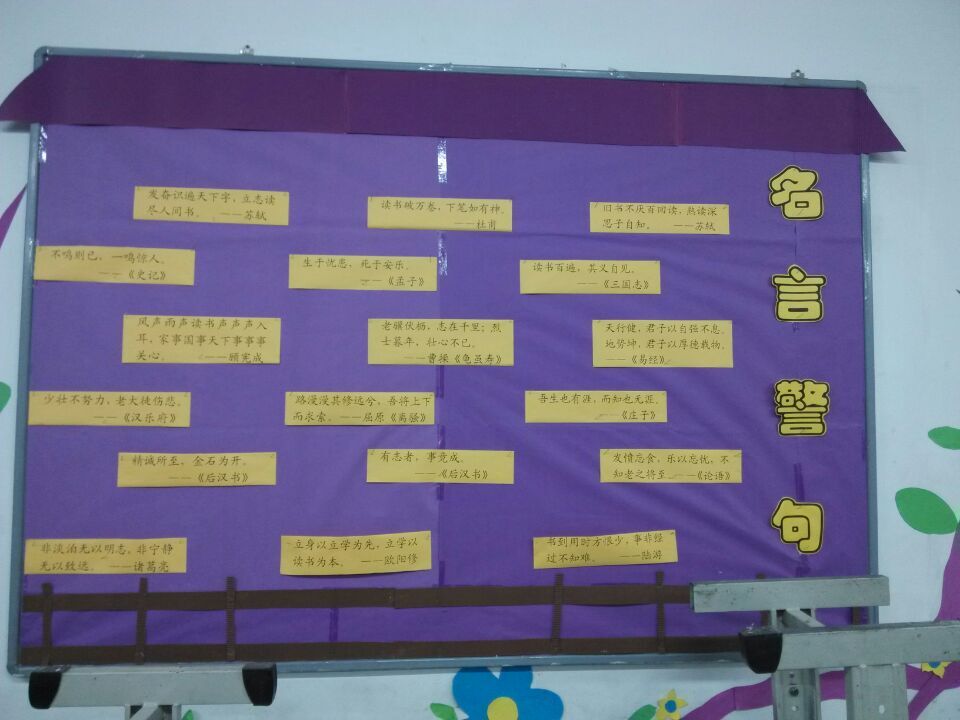 名言警句
发奋识遍天下字，立志读
尽人间书。 ——苏轼
读书破万卷，下笔如有神。
——杜甫
旧书不厌百回读，熟读深
思子自知。 ——苏轼
不鸣则已，一鸣惊人。
——《史记》
生于忧患，死于安乐。
——《孟子》
读书百遍，其义自见。
——《三国志》
风声雨声读书声声声入
耳，家事国事天下事事事
关心。 ——顾宪成
老骥伏枥，志在千里；烈
士暮年，壮心不已。
——曹操《龟虽寿》
天行健，君子以自强不息。
地势坤，君子以厚德载物。
——《易经》
少壮不努力，老大徒伤悲。
——《汉乐府》
路漫漫其修远兮，吾将上下
而求索。——屈原《离骚》
吾生也有涯，而知也无涯。
——《庄子》
精诚所至，金石为开。
——《后汉书》
有志者，事竟成。
——《后汉书》
发愤忘食，乐以忘忧，不
知老之将至。——《论语》
非淡泊无以明志，非宁静
无以致远。 ——诸葛亮
立身以立学为先，立学以
读书为本。 ——欧阳修
书到用时方恨少，事非经
过不知难。 ——陆游